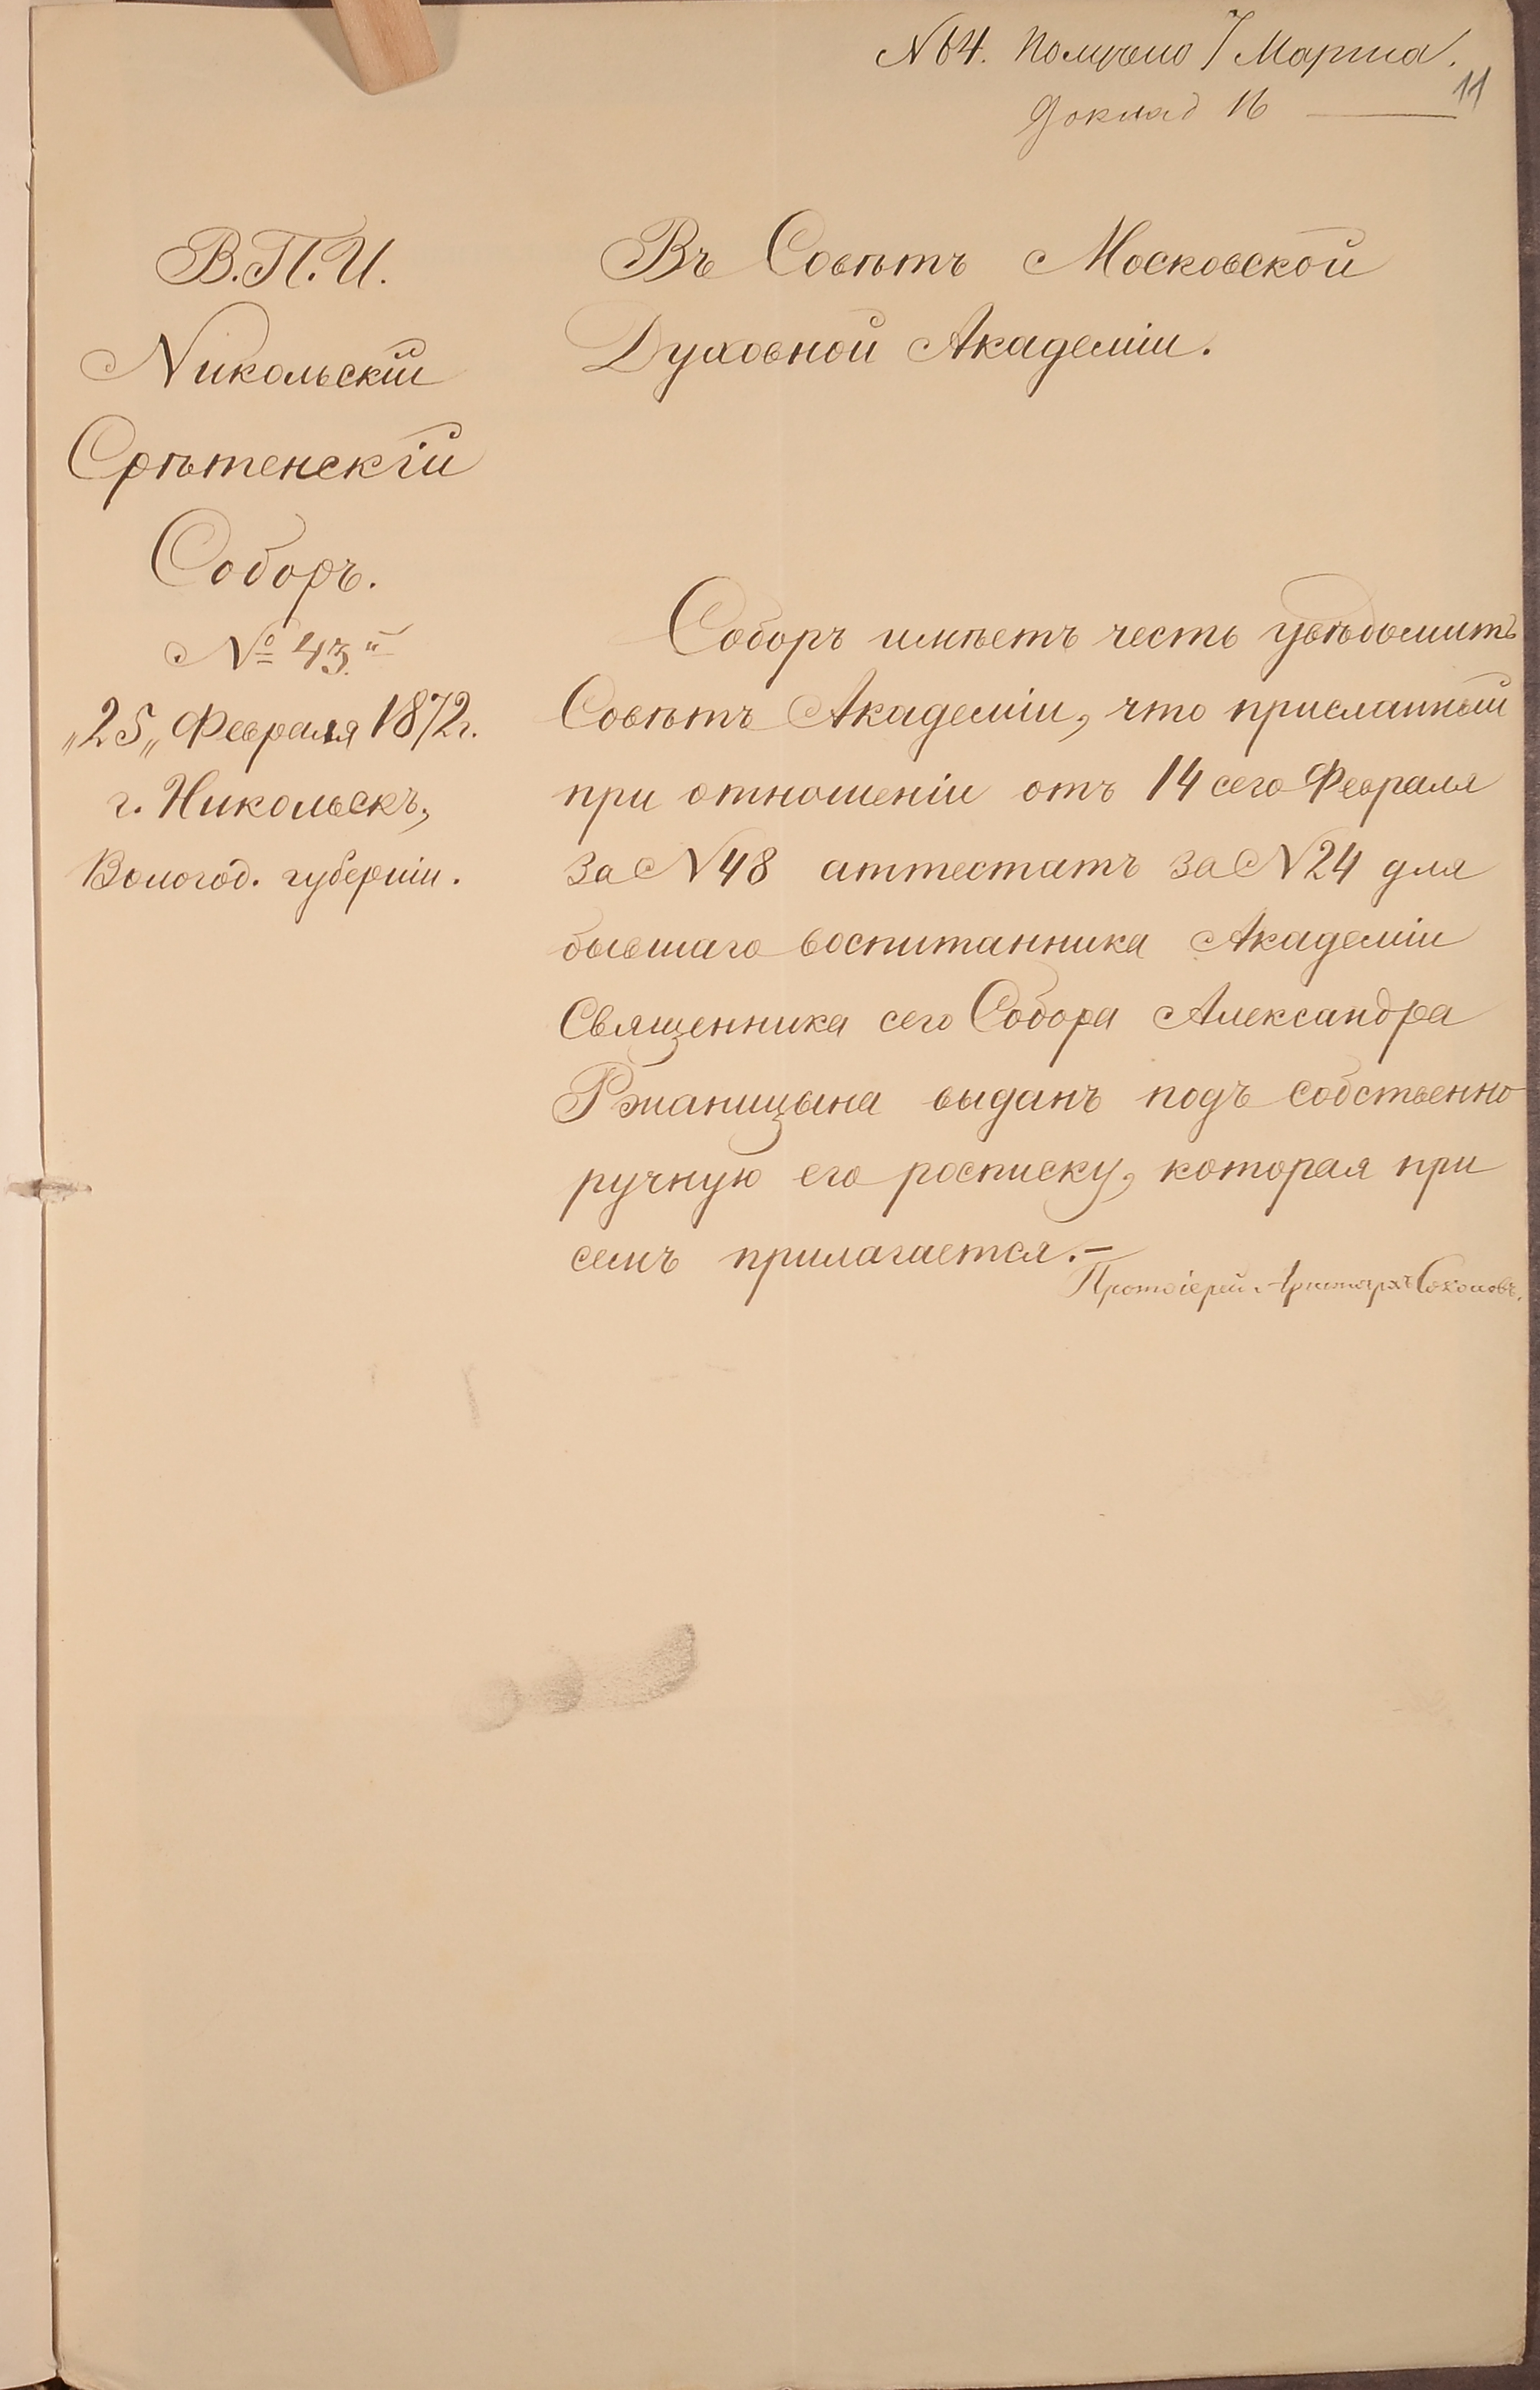 N 64. Получено 7 Марта.
11
Доклад 16 —
В.П.И.
Никольскій
Срѣтенскій
Соборъ.
№ 43.й
„25„ Февраля 1872г.
г. Никольскъ,
Вологод. губерніи.
Въ Совѣтъ Московской
Духовной Академіи.
Соборъ имѣетъ честь увѣдомить
Совѣтъ Академіи, что присланный
при отношеніи отъ 14 сего Февраля
за N 48 аттестатъ за N 24 для
бывшаго воспитанника Академіи
Священника сего Собора Александра
Ржаницына выданъ подъ собственно
ручную его росписку, которая при
семъ прилагается.—
Протоіерей Аристархъ Соколовъ.